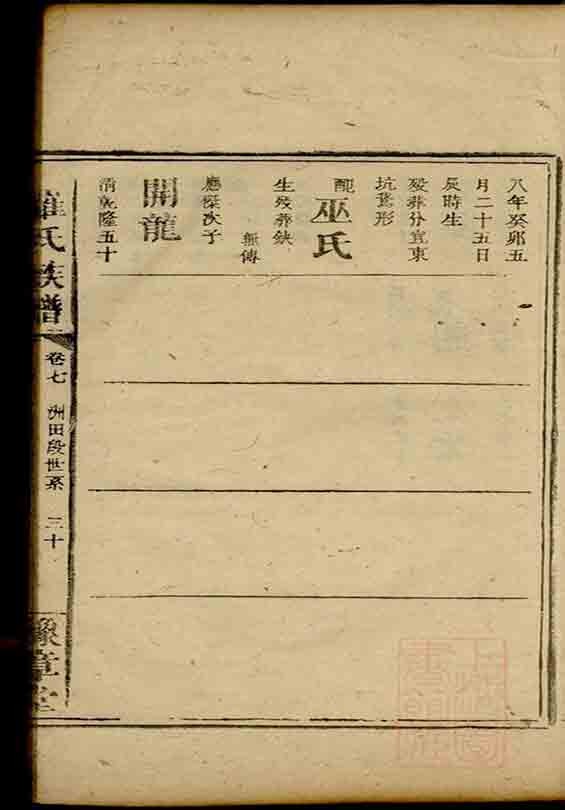 八年癸卯五
月二十五日
辰時生
歿葬分宜東
坑鵞形
配
巫氏
生歿葬缺
無傳
應傑次子
開龍
清乾隆五十
羅氏族譜
卷七
洲田段世系
三十
豫章堂